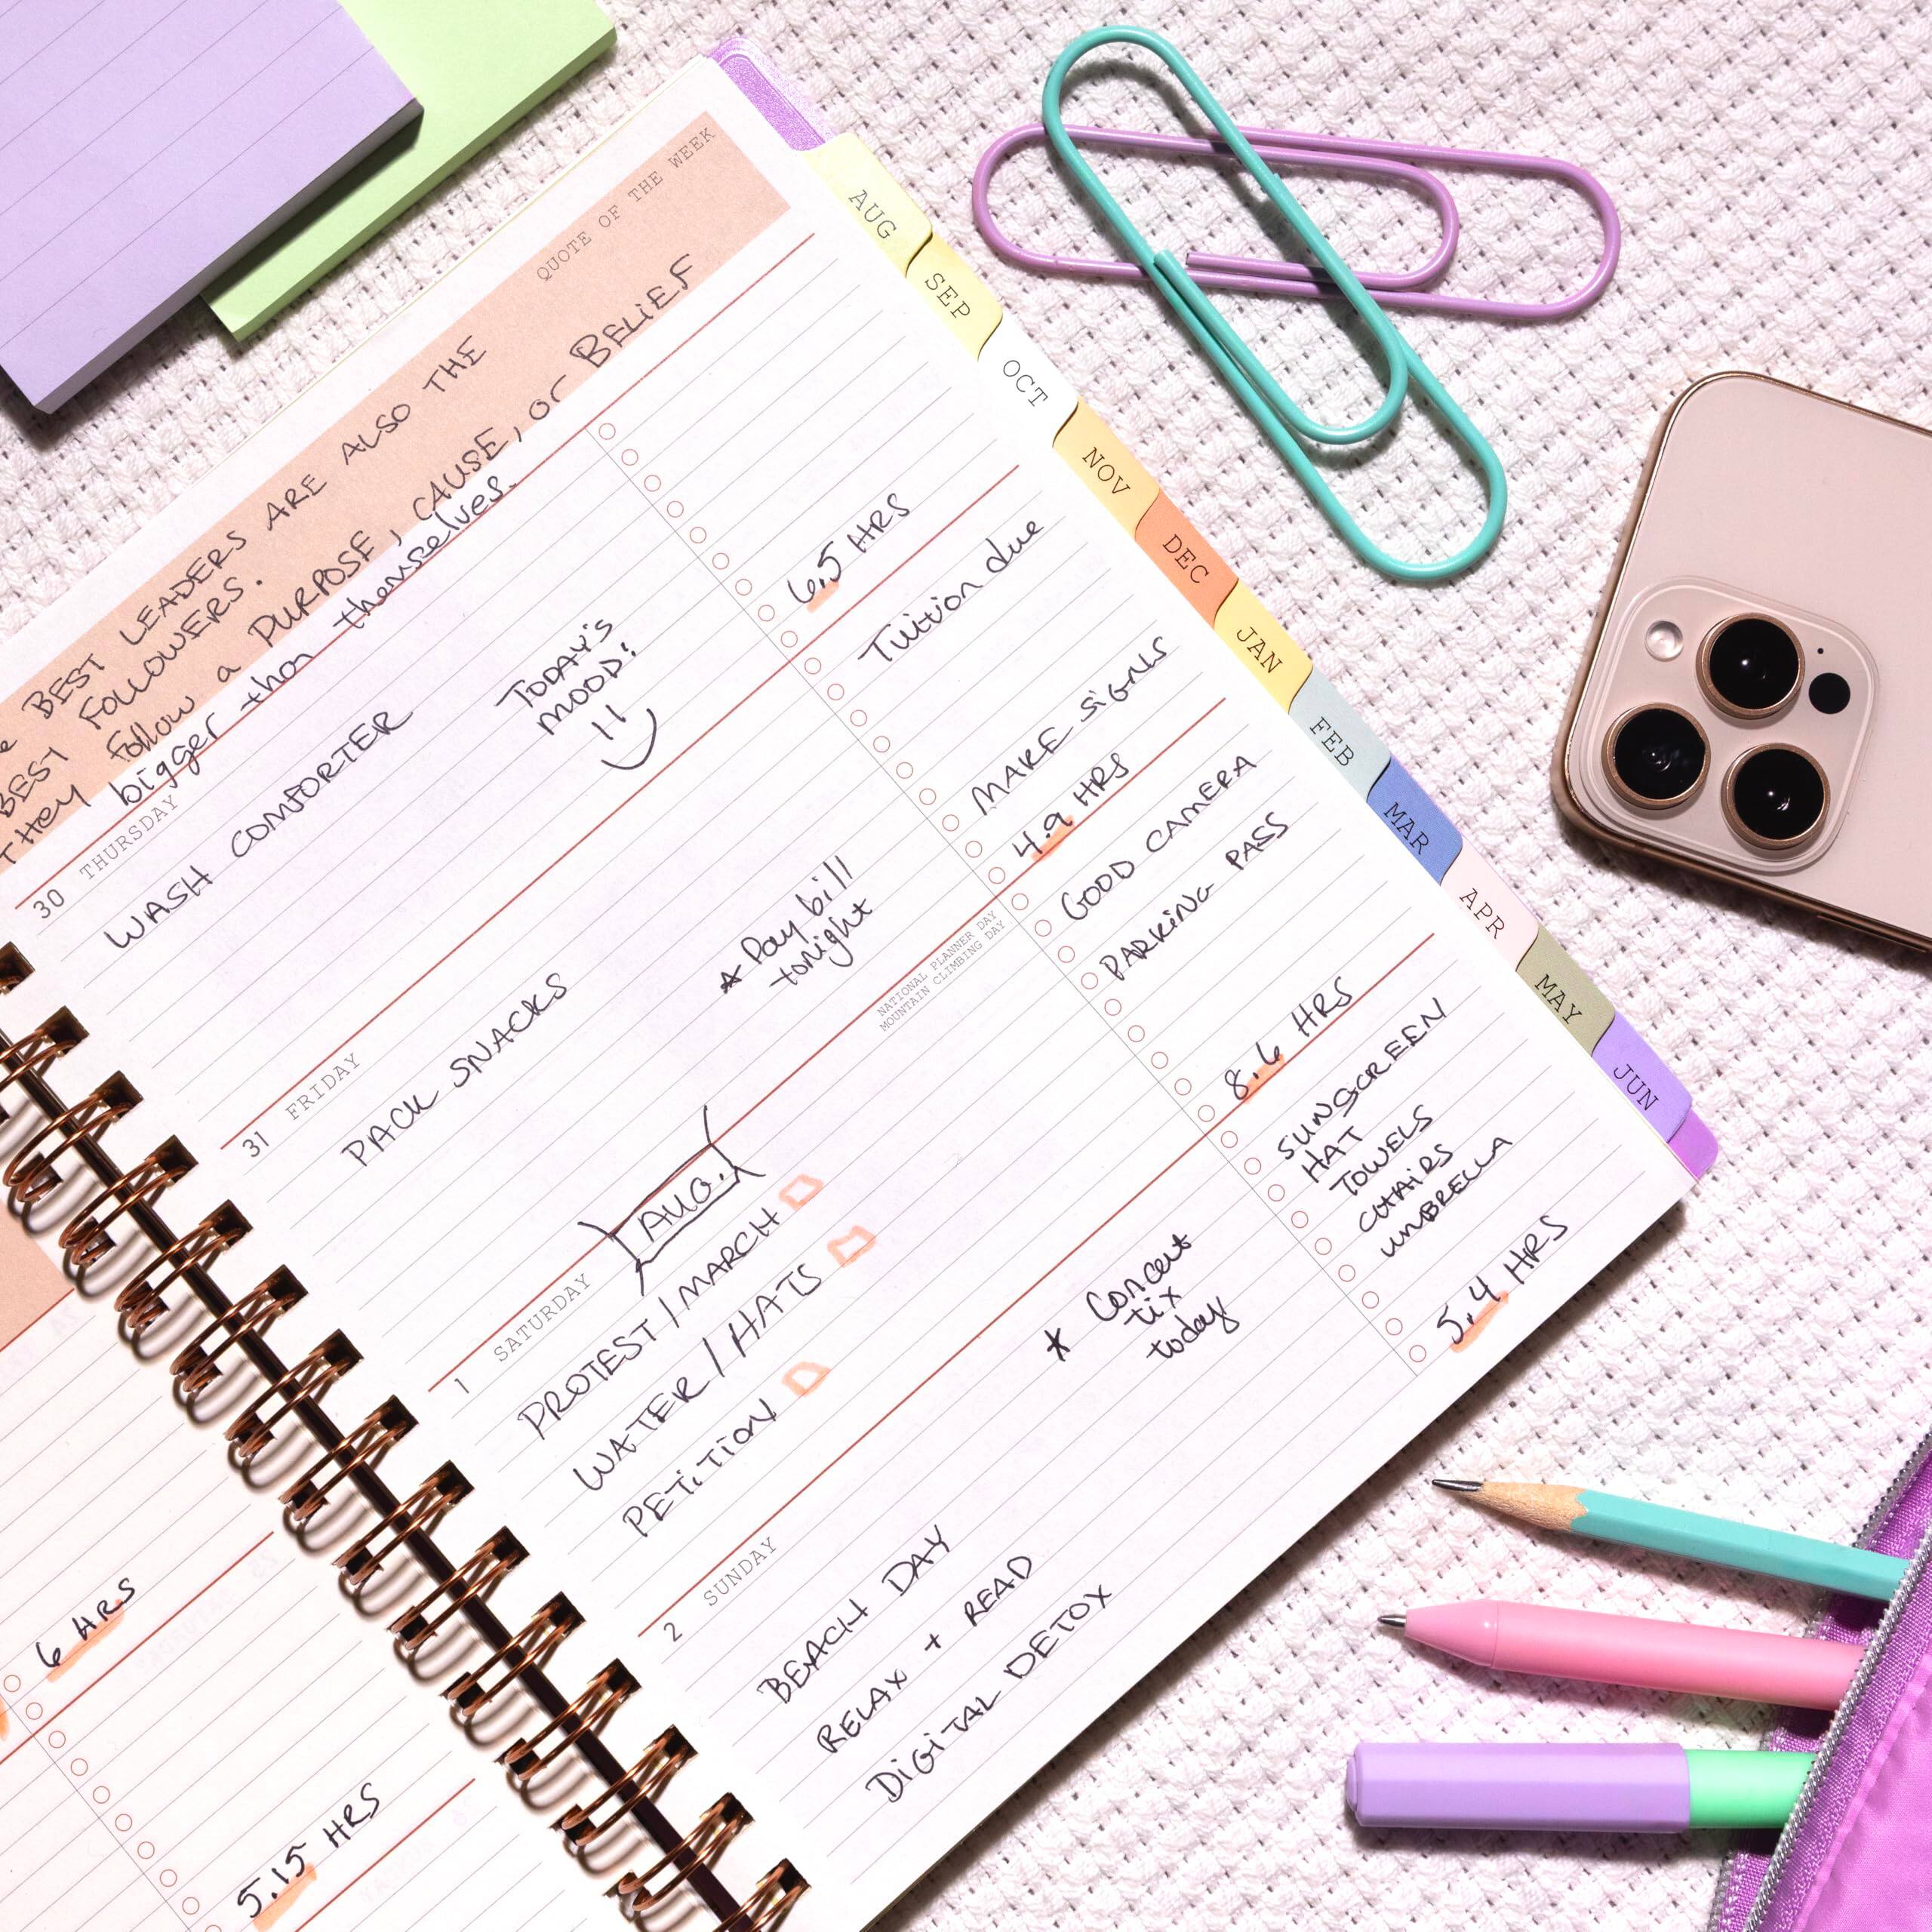 QUOTE OF THE WEEK
BEST LEADERS ARE ALSO THE
BEST FOLLOWERS.
THEY follow a PURPOSE, CAUSE, or BELIEF
bigger than themselves.
30 THURSDAY
WASH COMFORTER
TODAY'S
MOOD:
6.5 HRS
31 FRIDAY
PACK SNACKS
* Pay bill
tonight
Tuition due
MAKE SIGNS
4.9 HRS
1 SATURDAY
AUG.
NATIONAL PLANNER DAY
MOUNTAIN CLIMBING DAY
PROTEST / MARCH
WATER / HATS
PETITION
GOOD CAMERA
PARKING PASS
8.6 HRS
2 SUNDAY
BEACH DAY
RELAX + READ
DIGITAL DETOX
* Concert
tix
today
SUNSCREEN
HAT
TOWELS
CHAIRS
UMBRELLA
5.4 HRS
6 HRS
5.15 HRS
AUG
SEP
OCT
NOV
DEC
JAN
FEB
MAR
APR
MAY
JUN